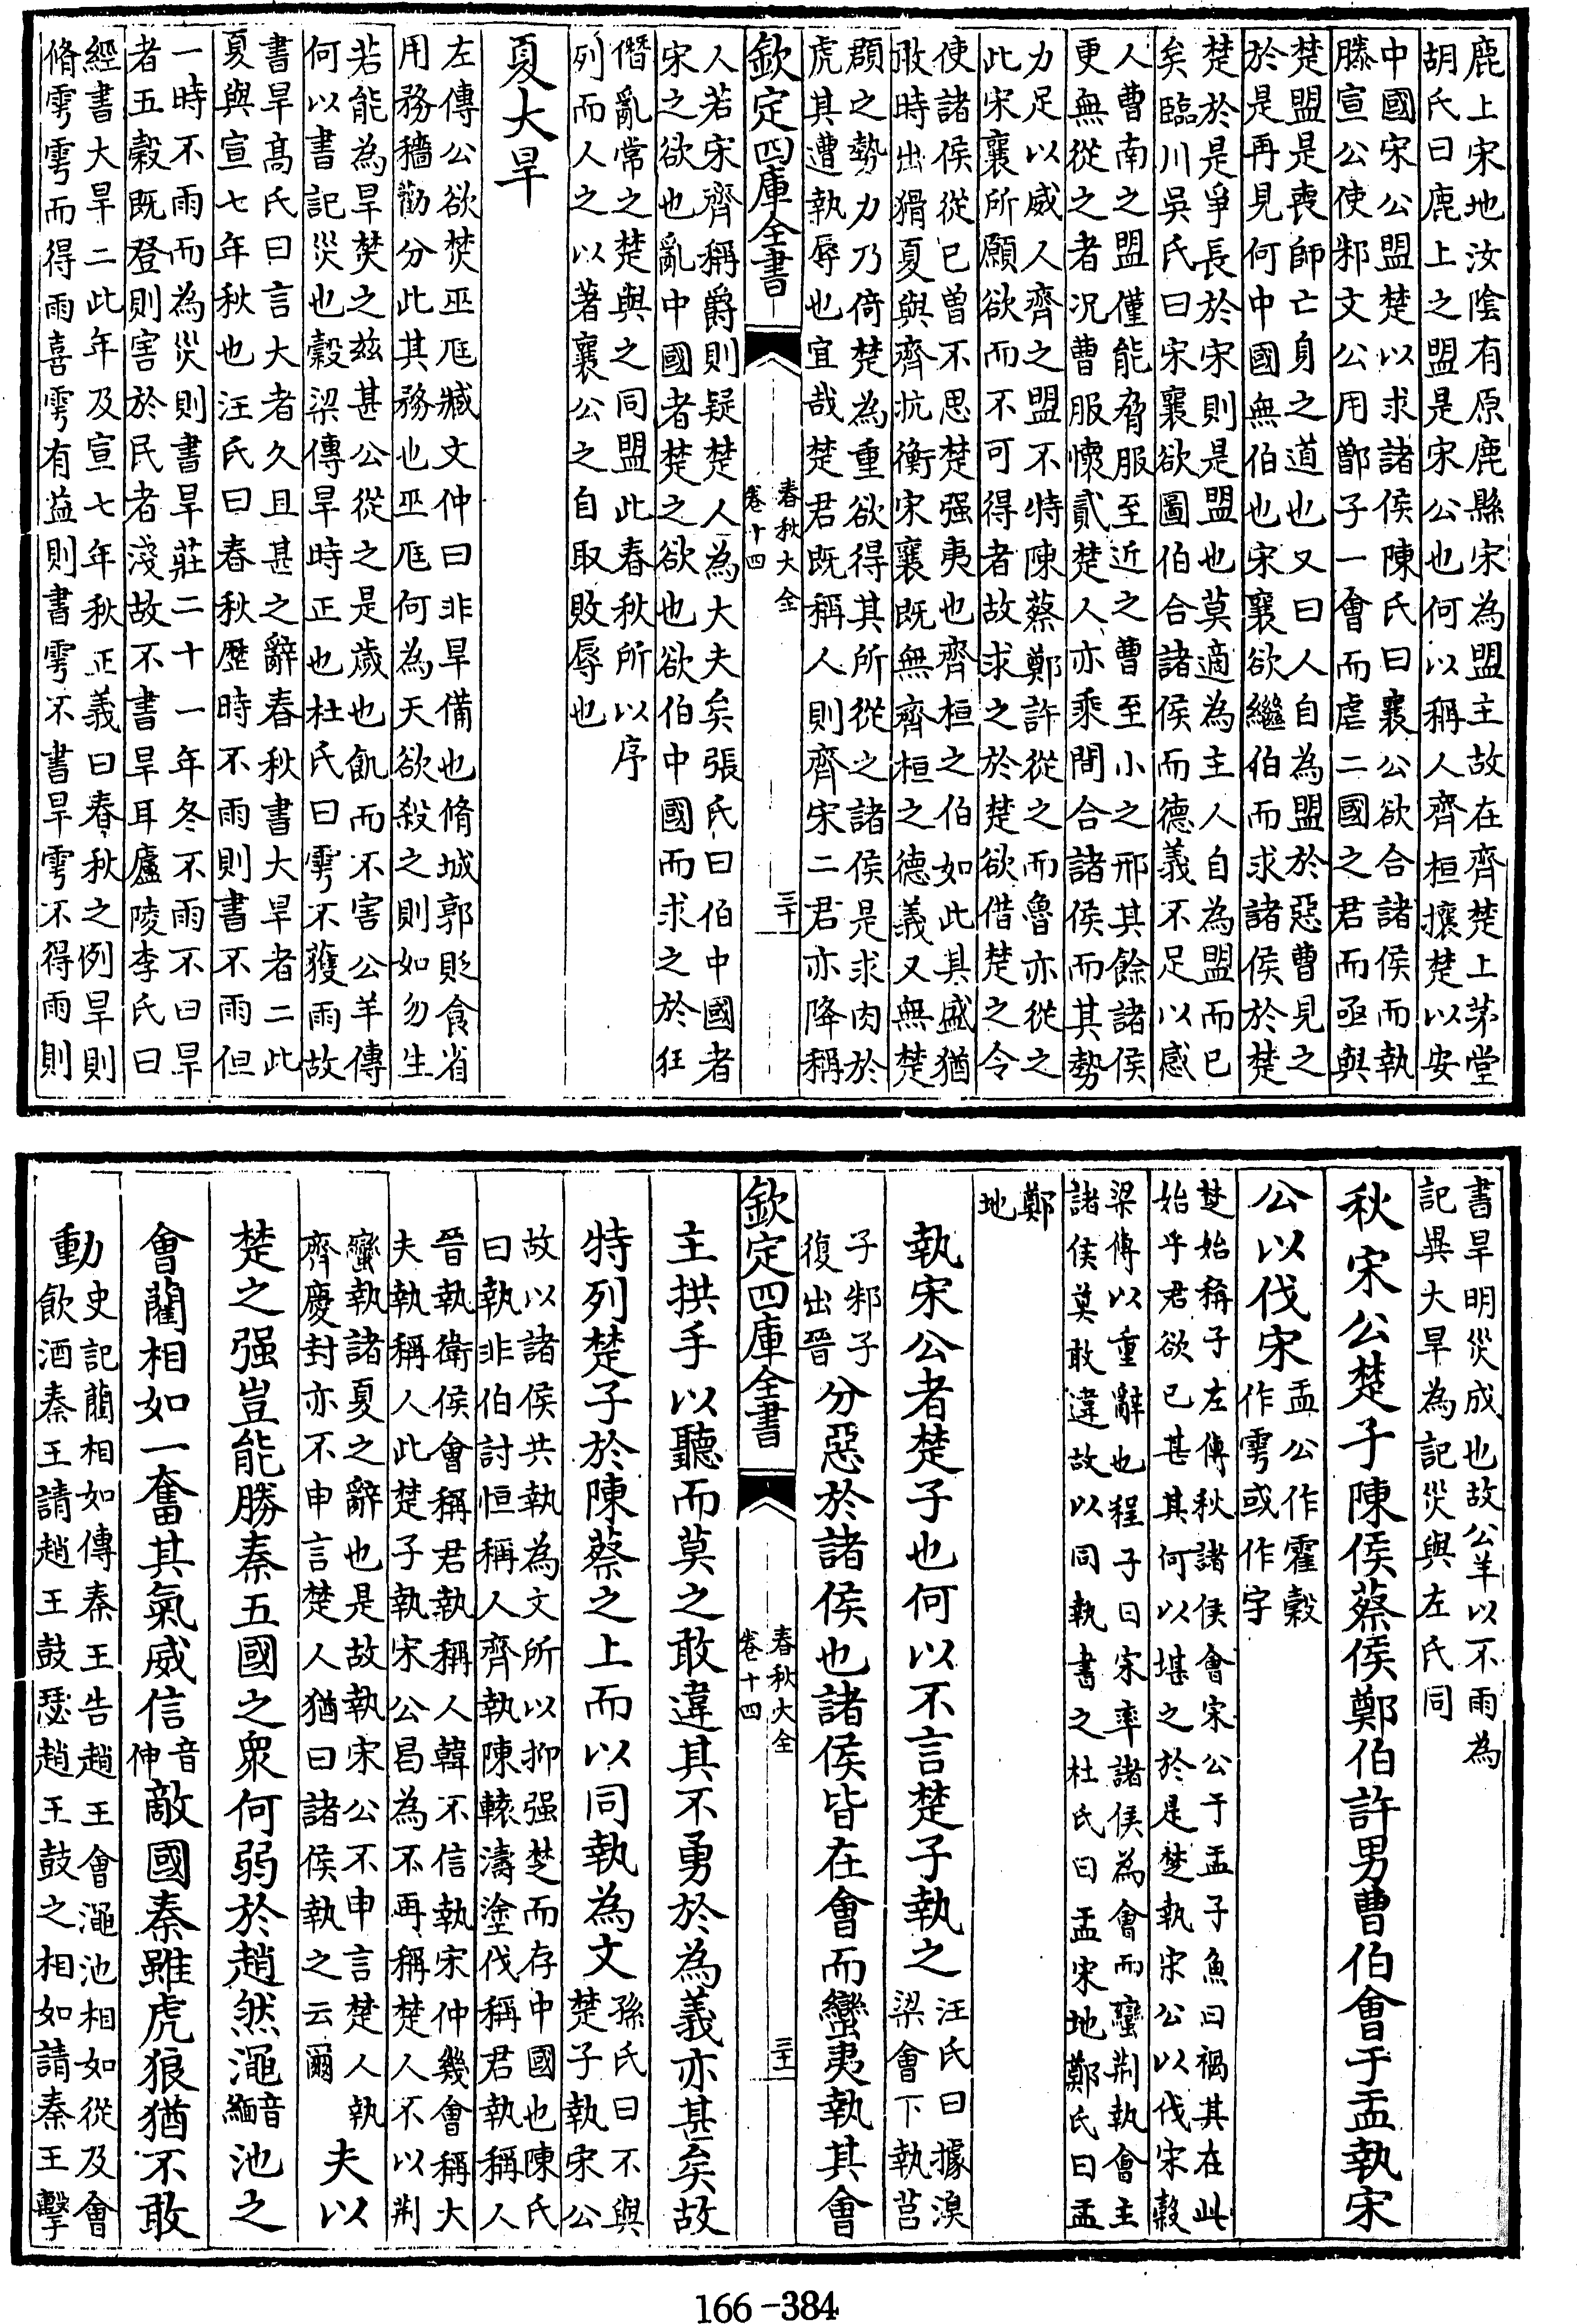 鹿上宋地汝隂有原鹿縣宋為盟主故在齊楚上茅堂
胡氏曰鹿上之盟是宋公也何以稱人齊桓攘楚以安
中國宋公盟楚以求諸侯陳氏曰襄公欲合諸侯而執
滕宣公使邾文公用鄫子一會而虐二國之君而亟與
楚盟是喪師亡身之道也又曰人自為盟於惡曹見之
於是再見何中國無伯也宋襄欲繼伯而求諸侯於楚
楚於是爭長於宋則是盟也莫適為主人自為盟而已
矣臨川吳氏曰宋襄欲圖伯合諸侯而德義不足以感
人曹南之盟僅能脅服至近之曹至小之邢其餘諸侯
更無從之者况曹服懷貳楚人亦乘間合諸侯而其勢
力足以威人齊之盟不特陳蔡鄭許從之而魯亦從之
此宋襄所願欲而不可得者故求之於楚欲借楚之令
使諸侯從已曾不思楚强夷也齊桓之伯如此其盛猶
敢時出猾夏與齊抗衡宋襄既無齊桓之德義又無楚
頵之勢力乃倚楚為重欲得其所從之諸侯是求肉於
虎其遭執辱也宜哉楚君既稱人則齊宋二君亦降稱
欽定四庫全書
春秋大全
卷十四
三十
人若宋齊稱爵則疑楚人為大夫矣張氏曰伯中國者
宋之欲也亂中國者楚之欲也欲伯中國而求之於狂
僭亂常之楚與之同盟此春秋所以序
列而人之以著襄公之自取敗辱也
夏大旱
左傳公欲焚巫尫臧文仲曰非旱備也脩城郭貶食省
用務穡勸分此其務也巫尫何為天欲殺之則如勿生
若能為旱焚之兹甚公從之是歲也飢而不害公羊傳
何以書記災也穀梁傳旱時正也杜氏曰雩不獲雨故
書旱髙氏曰言大者久且甚之辭春秋書大旱者二此
夏與宣七年秋也汪氏曰春秋歷時不雨則書不雨但
一時不雨而為災則書旱莊二十一年冬不雨不曰旱
者五穀既登則害於民者淺故不書旱耳廬陵李氏曰
經書大旱二此年及宣七年秋正義曰春秋之例旱則
脩雩雩而得雨喜雩有益則書雩不書旱雩不得雨則
書旱明災成也故公羊以不雨為
記異大旱為記災與左氏同
秋宋公楚子陳侯蔡侯鄭伯許男曹伯會于盂執宋
公以伐宋
盂公作霍穀
作雩或作宇
楚始稱子左傳秋諸侯會宋公于盂子魚曰禍其在此
始乎君欲已甚其何以堪之於是楚執宋公以伐宋穀
梁傳以重辭也程子曰宋率諸侯為會而蠻荆執會主
諸侯莫敢違故以同執書之杜氏曰盂宋地鄭氏曰盂
鄭
地
執宋公者楚子也何以不言楚子執之
汪氏曰據溴
梁會下執莒
子邾子
復出晉
分惡於諸侯也諸侯皆在會而蠻夷執其會
欽定四庫全書
春秋大全
卷十四
三十一
主拱手以聽而莫之敢違其不勇於為義亦甚矣故
特列楚子於陳蔡之上而以同執為文
孫氏曰不與
楚子執宋公
故以諸侯共執為文所以抑强楚而存中國也陳氏
曰執非伯討恒稱人齊執陳轅濤塗伐稱君執稱人
晉執衛侯會稱君執稱人韓不信執宋仲幾會稱大
夫執稱人此楚子執宋公曷為不再稱楚人不以荆
蠻執諸夏之辭也是故執宋公不申言楚人執
齊慶封亦不申言楚人猶曰諸侯執之云爾
夫以
楚之强豈能勝秦五國之衆何弱於趙然澠
音
緬
池之
會藺相如一奮其氣威信
音
伸
敵國秦雖虎狼猶不敢
動
史記藺相如傳秦王告趙王會澠池相如從及會
飲酒秦王請趙王鼓瑟趙王鼓之相如請秦王擊
166-384